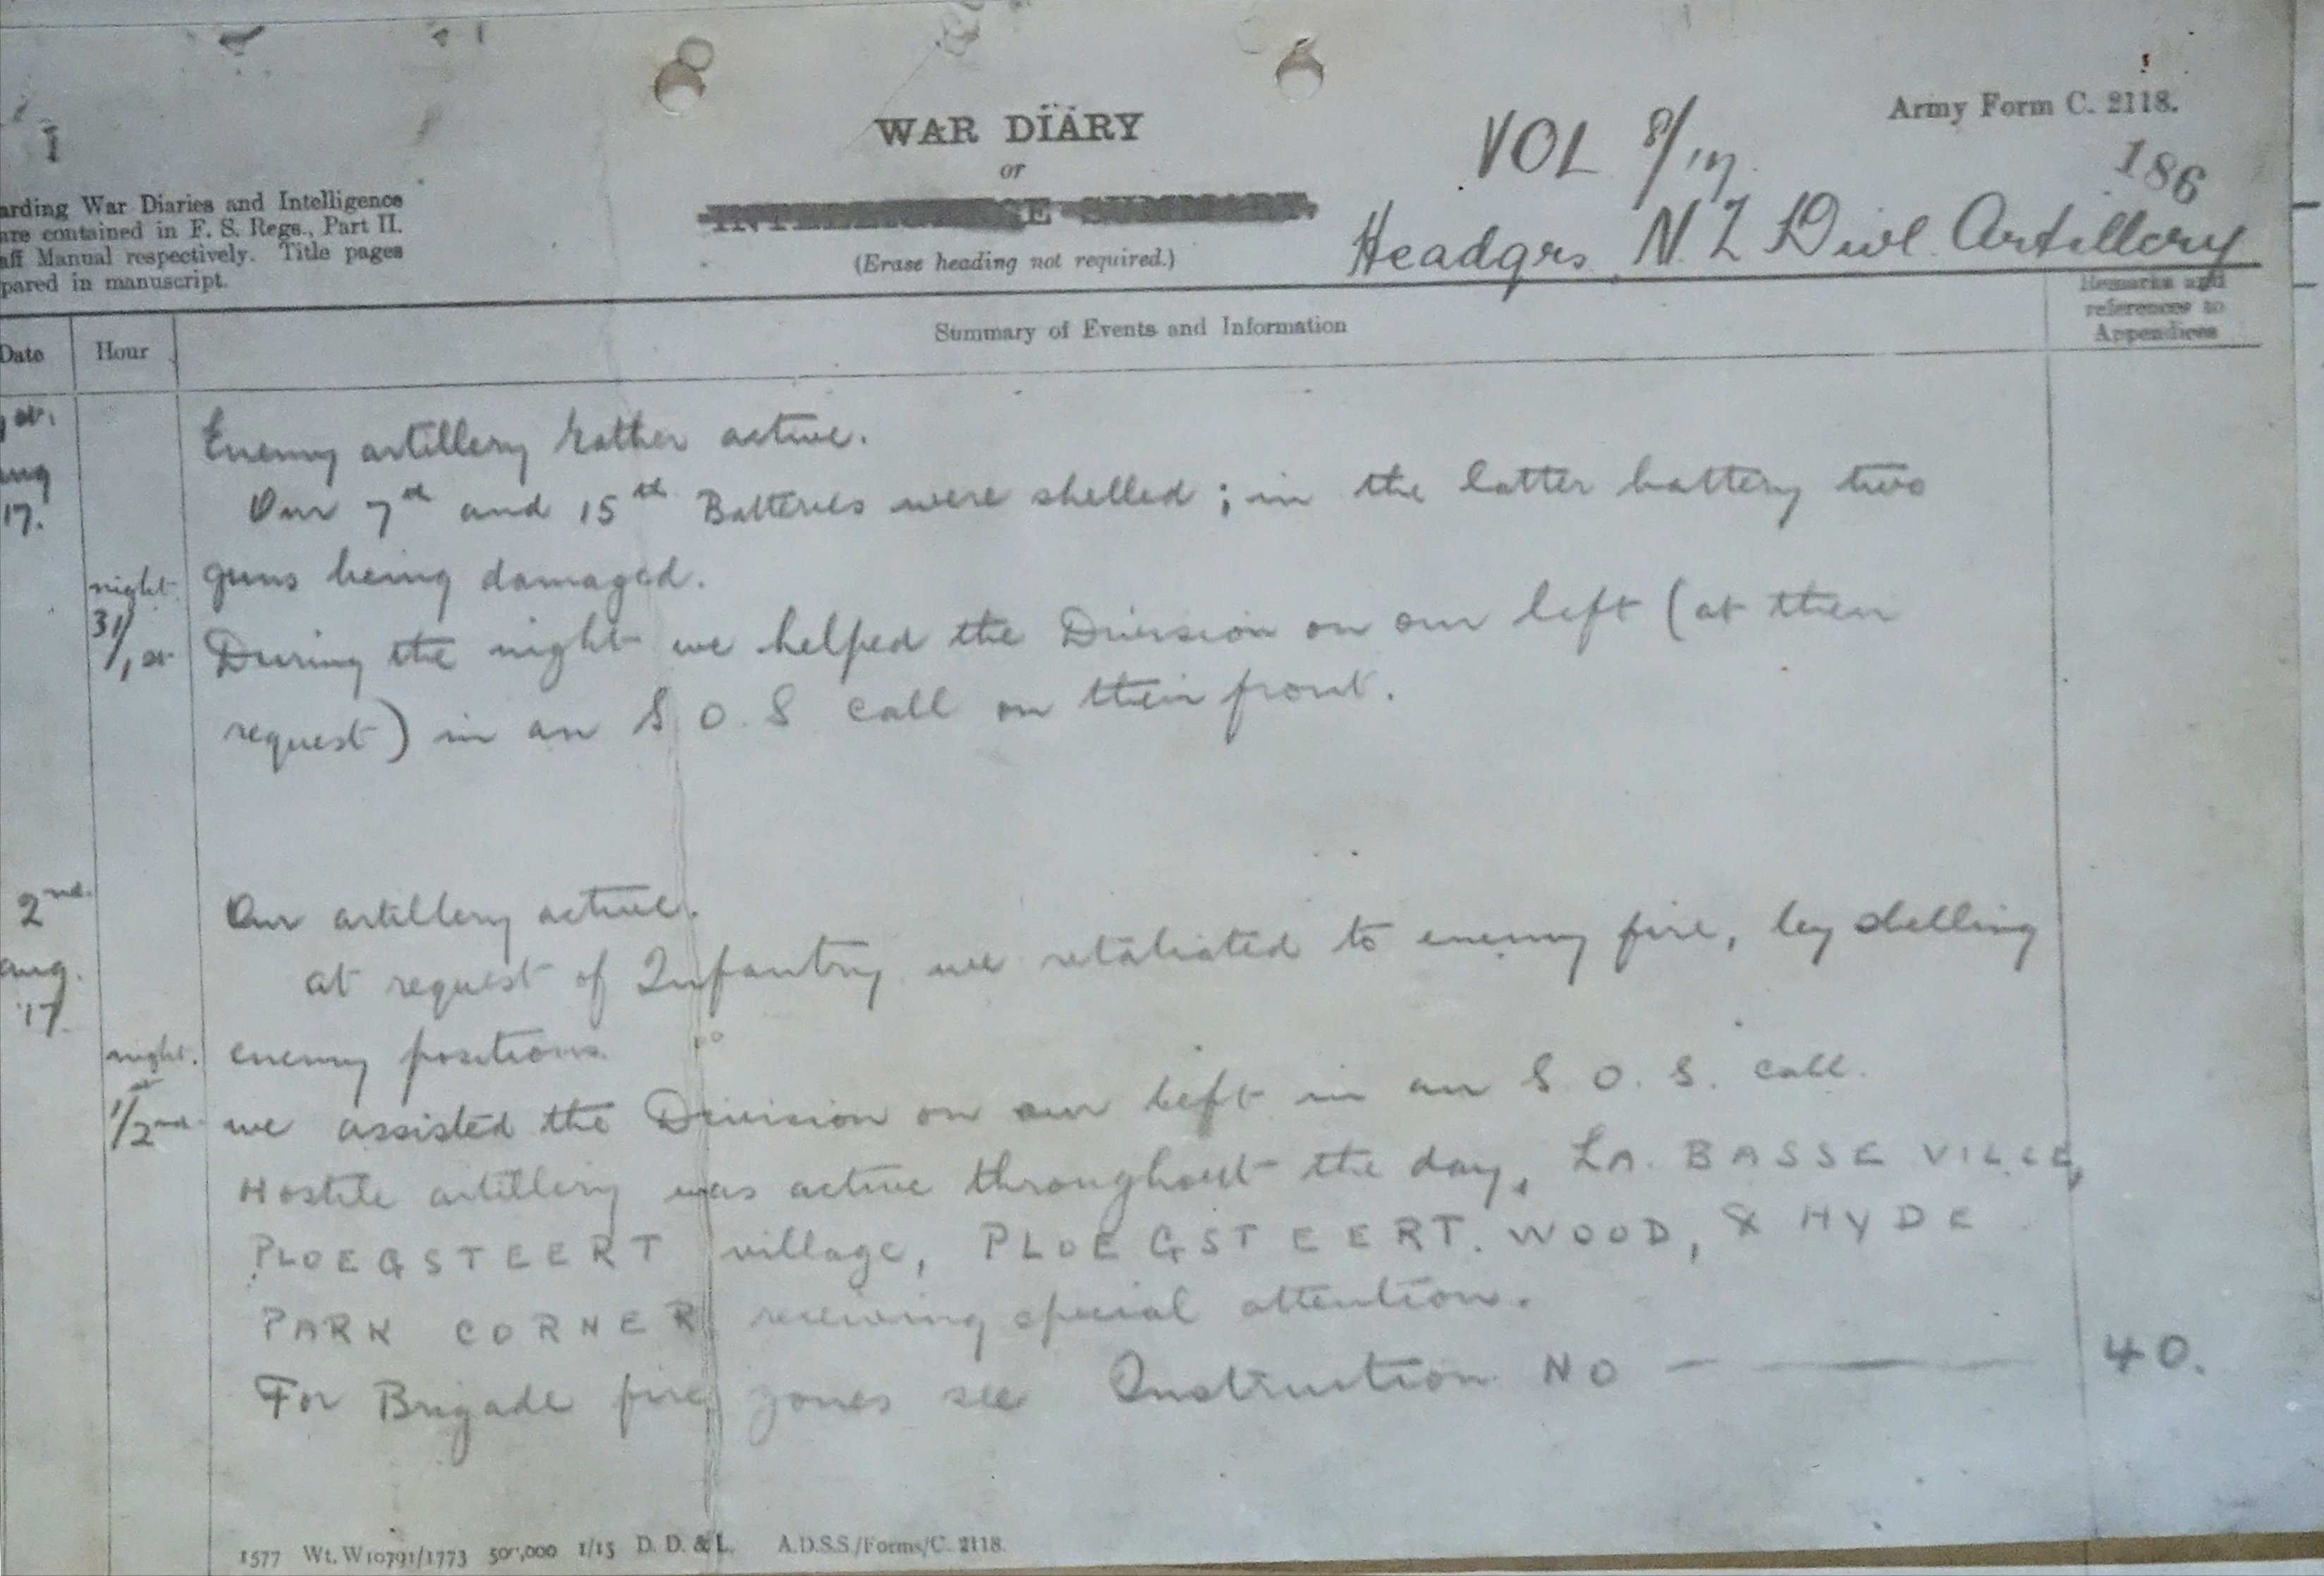 WAR DIARY
or
(Erase heading not required.)
Army Form C. 2118.
VOL 8/17
186
Headqrs N Z Divl Artillery
arding War Diaries and Intelligence
are contained in F. S. Regs., Part II.
aff Manual respectively. Title pages
pared in manuscript.
Date Hour Summary of Events and Information Remarks and
references to
Appendices
1 st.
aug
17.
Enemy artillery rather active.
Our 7th and 15th Batteries were shelled; in the latter battery two
night. guns being damaged.
31/1st During the night we helped the Division on our left (at their
request) in an S O. S call on their front.
2nd Our artillery active.
aug. at request of Infantry we retaliated to enemy fire, by shelling
'17.
night. enemy positions.
1st/2nd we assisted the Division on our left in an S. O. S. call.
Hostile artillery was active throughout the day, LA. BASSE VILLE,
PLOEGSTEERT village, PLOEGSTEERT. WOOD, & HYDE
PARK CORNER receiving special attention.
For Brigade fire zones see Instruction NO — 40.
1577 Wt. W10791/1773 500,000 1/15 D. D. & L. A.D.S.S./Forms/C. 2118.